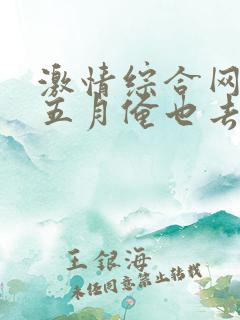 激情综合网
五月俺也去
王银海
未经同意禁止转载